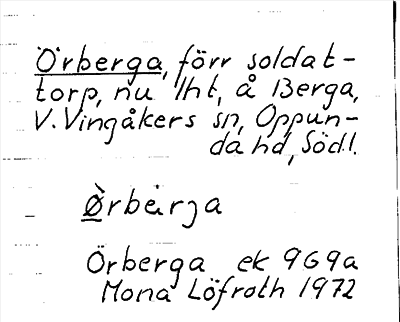 Örberga, förr soldat-
torp, nu lht, å Berga,
V. Vingåkers sn, Oppun-
da hd, Södl.
Ø̀rbärja
Örberga ek 9G9a
Mona Löfroth 1972